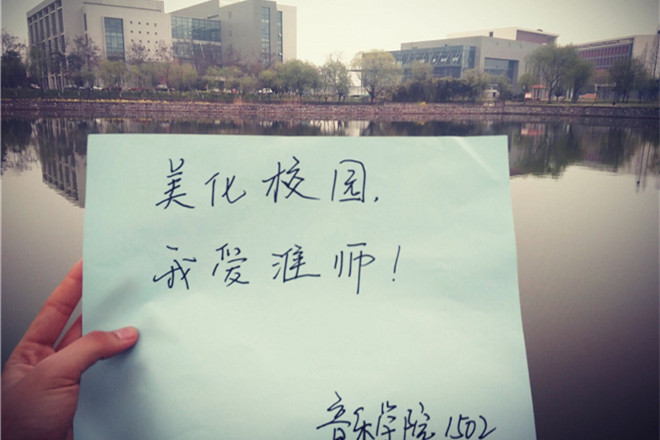 美化校园,
我爱淮师!
音乐学院1502